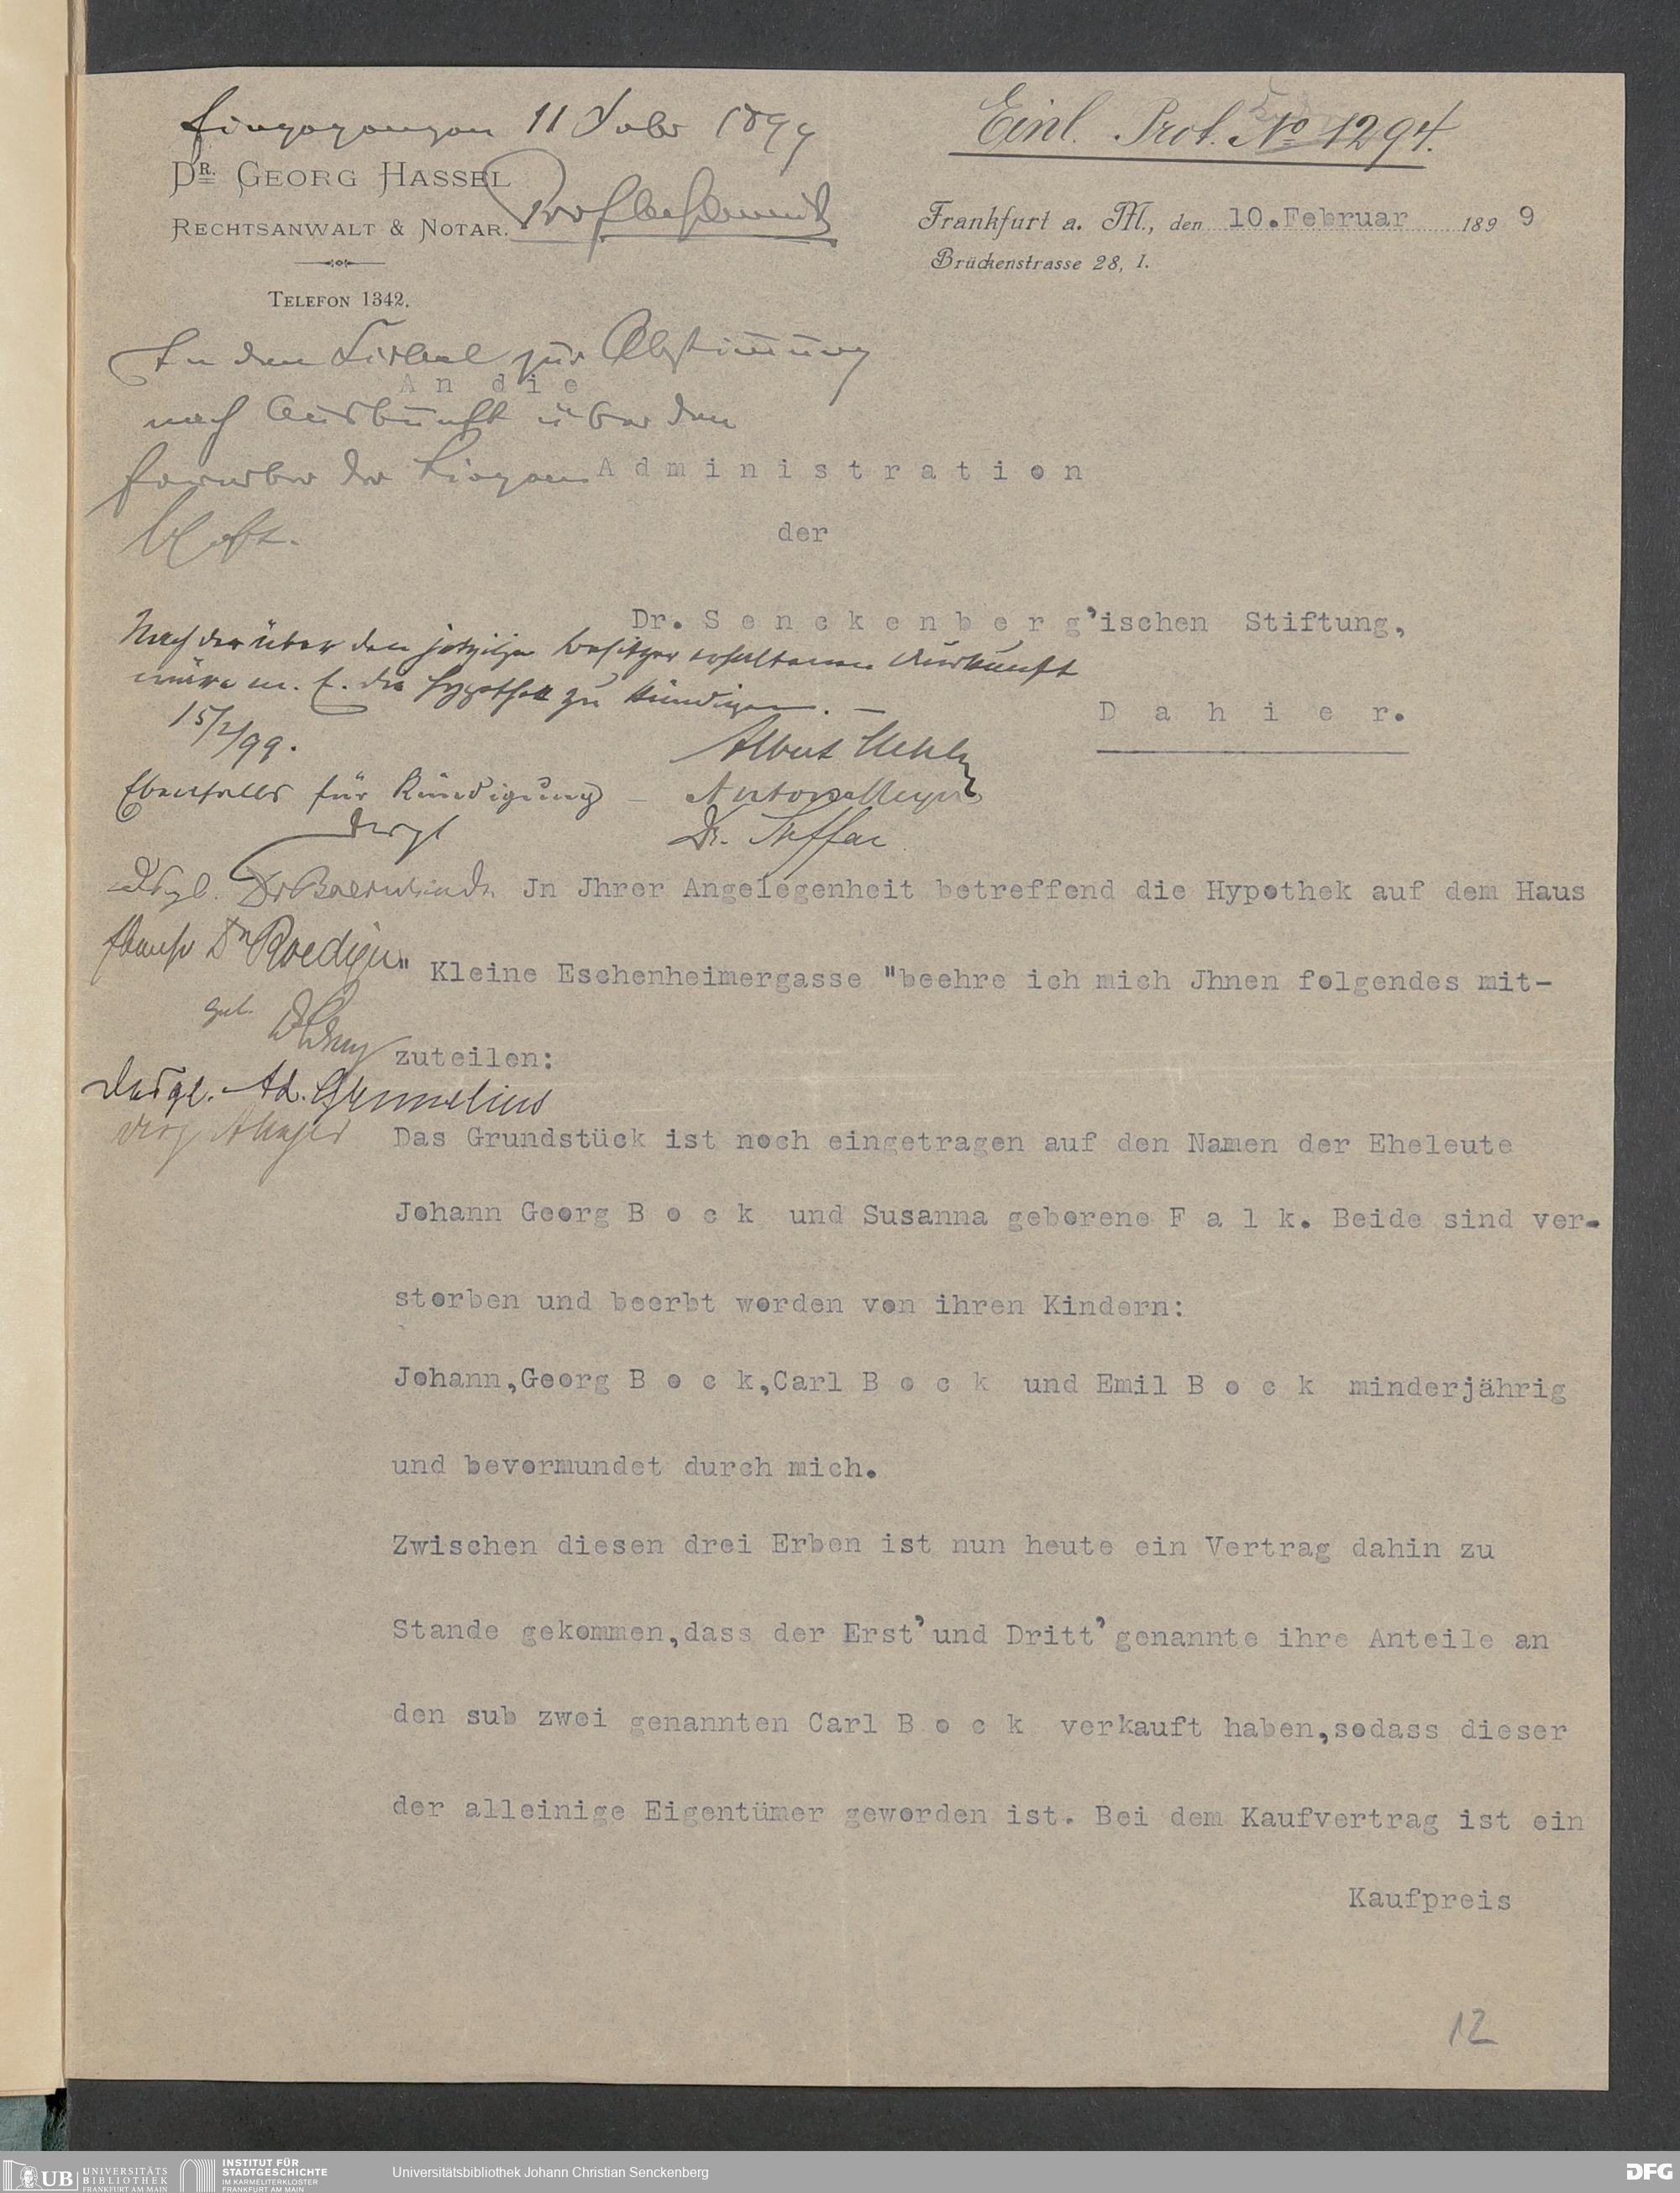 Eingegangen 11 Febr 1899
Einl. Prot. No 1294.
DR. GEORG HASSEL
RECHTSANWALT & NOTAR.
TELEFON 1342.
Frankfurt a. M., den 10.Februar 1899
Brückenstrasse 28, I.
In den Cirkel zur Abstimmung
An die
nach Auskunft über den
Erwerber der Liegen
schaft.
Administration
der
Dr. Senckenberg'ischen Stiftung,
Dahier.
Nach der über den jetzigen Besitzer erhaltenen Auskunft
wäre m. E. die Hypothek zu kündigen. –
15/2/99.
Albert
Ebenfalls für Kündigung – Anton
desgl Dr.
Dsgl.
Jn Jhrer Angelegenheit betreffend die Hypothek auf dem Haus
Ebenso Dr Roediger
" Kleine Eschenheimergasse "beehre ich mich Jhnen folgendes mit-
zuteilen:
Desgl. Ad. Gymnelius
Das Grundstück ist noch eingetragen auf den Namen der Eheleute
Johann Georg Bock und Susanna geborene Falk. Beide sind ver-
storben und beerbt worden von ihren Kindern:
Johann,Georg Bock,Carl Bock und Emil Bock minderjährig
und bevormundet durch mich.
Zwischen diesen drei Erben ist nun heute ein Vertrag dahin zu
Stande gekommen,dass der Erst'und Dritt'genannte ihre Anteile an
den sub zwei genannten Carl Bock verkauft haben,sodass dieser
der alleinige Eigentümer geworden ist. Bei dem Kaufvertrag ist ein
Kaufpreis
12
UB UNIVERSITÄTS
BIBLIOTHEK
FRANKFURT AM MAIN
INSTITUT FÜR
STADTGESCHICHTE
IM KARMELITERKLOSTER
FRANKFURT AM MAIN
Universitätsbibliothek Johann Christian Senckenberg
DFG